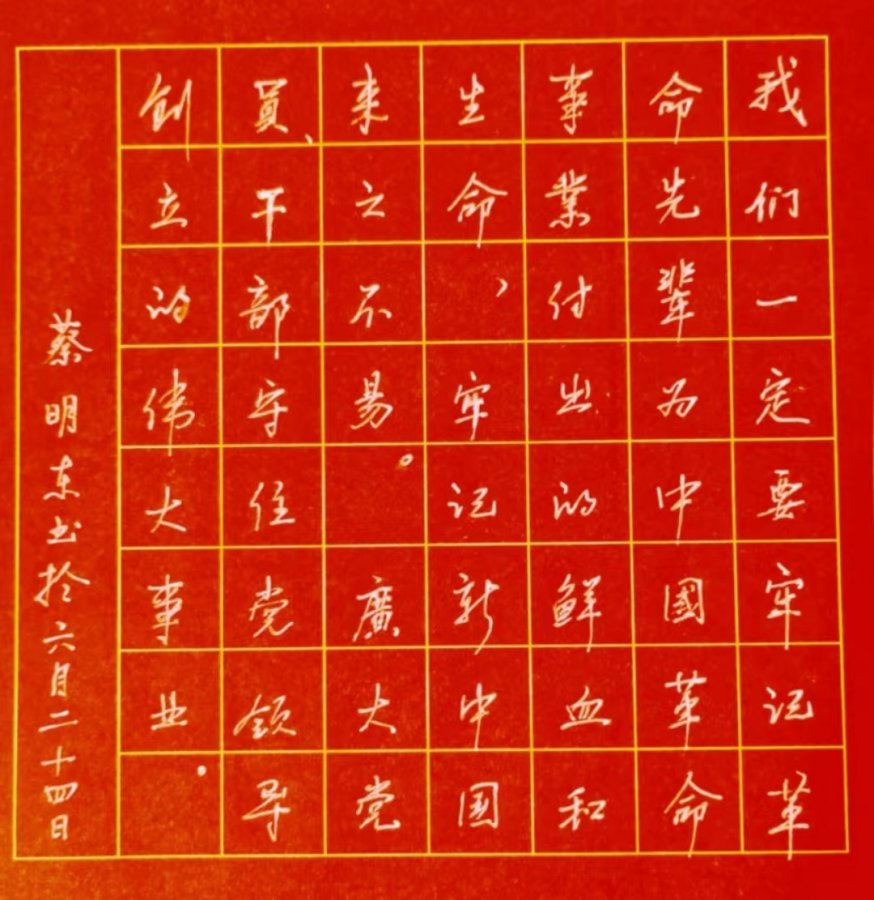 我们一定要牢记革
命先辈为中國革命
事業付出的鲜血和
生命，牢记新中国
来之不易。廣大党
員、干部守住党领导
创立的伟大事业。
蔡明东书於六月二十四日